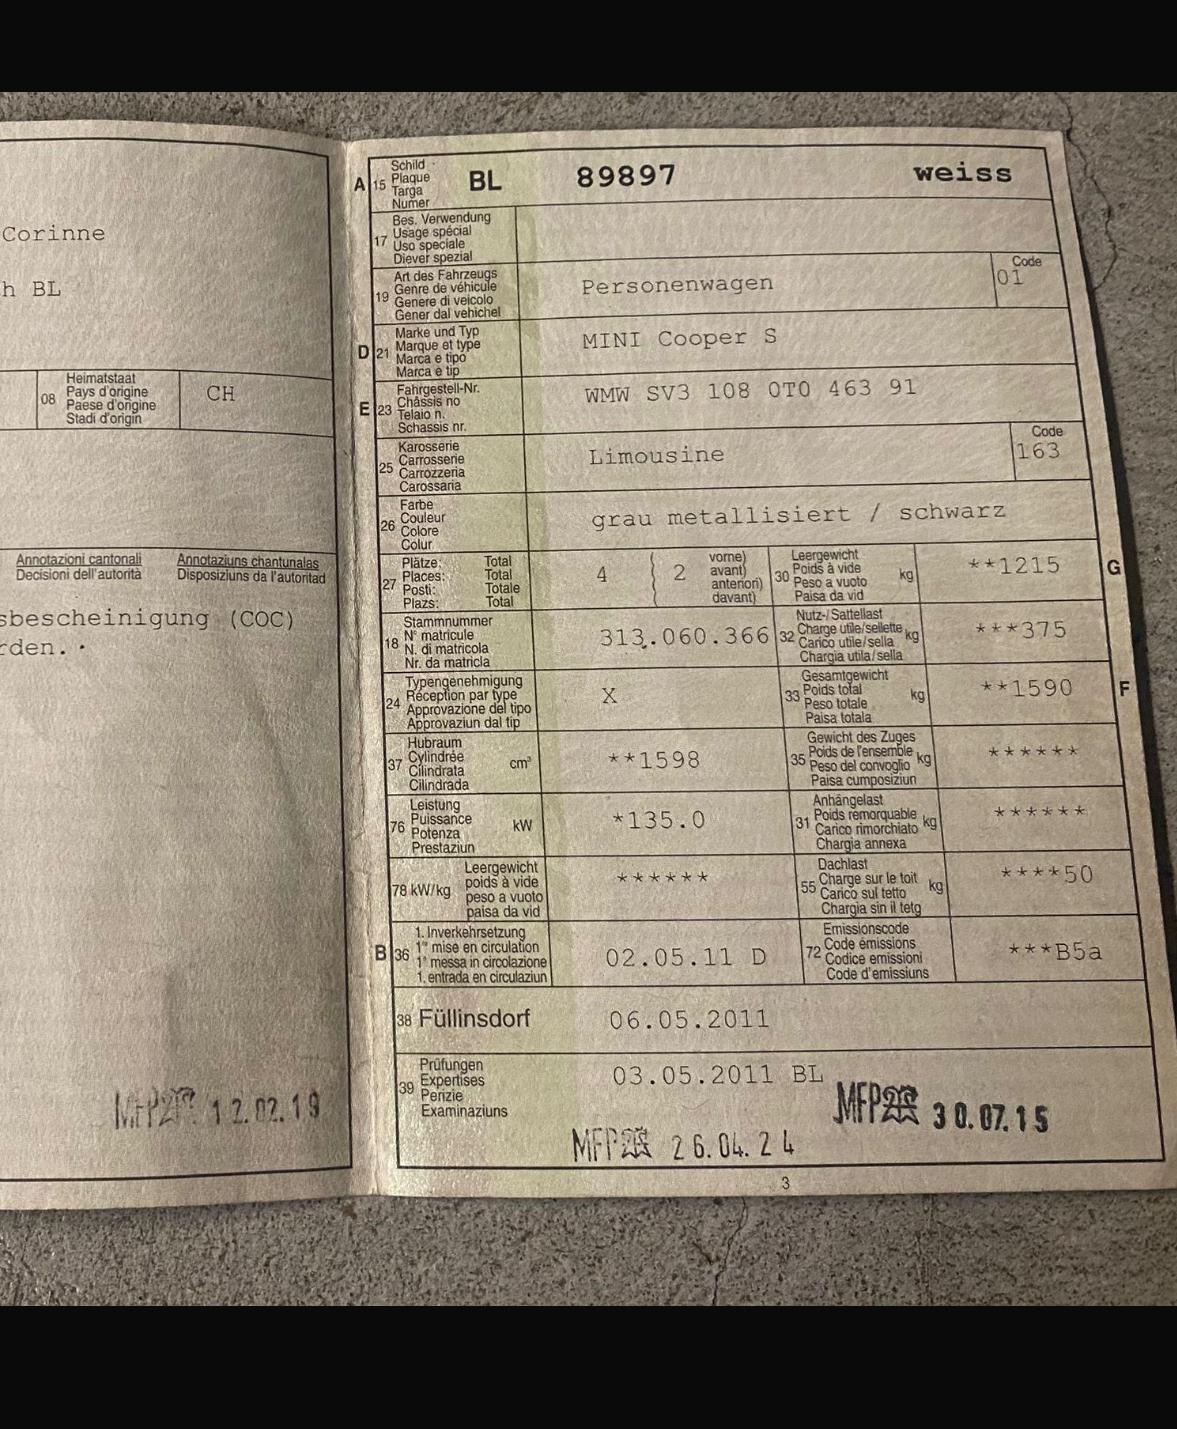 Corinne
h BL
08 Heimatstaat
Pays d'origine
Paese d'origine
Stadi d'origin
CH
Annotazioni cantonali
Decisioni dell'autorità
Annotaziuns chantunalas
Disposiziuns da l'autoritad
sbescheinigung (COC)
rden.
MFP 12.02.19
A 15 Schild
Plaque
Targa
Numer
BL 89897 weiss
17 Bes. Verwendung
Usage spécial
Uso speciale
Diever spezial
19 Art des Fahrzeugs
Genre de véhicule
Genere di veicolo
Gener dal vehichel
Personenwagen
Code
01
D 21 Marke und Typ
Marque et type
Marca e tipo
Marca e tip
MINI Cooper S
E 23 Fahrgestell-Nr.
Châssis no
Telaio n.
Schassis nr.
WMW SV3 108 0T0 463 91
25 Karosserie
Carrosserie
Carrozzeria
Carossaria
Limousine
Code
163
26 Farbe
Couleur
Colore
Colur
grau metallisiert / schwarz
27 Plätze: Total
Places: Total
Posti: Totale
Plazs: Total
4 ( 2 vorne)
( avant)
( anteriori)
( davant)
30 Leergewicht
Poids à vide
Peso a vuoto
Paisa da vid
kg
**1215
G
18 Stammnummer
N° matricule
N. di matricola
Nr. da matricla
313.060.366
32 Nutz-/Sattellast
Charge utile/sellette
Carico utile/sella
Chargia utila/sella
kg
***375
24 Typengenehmigung
Réception par type
Approvazione del tipo
Approvaziun dal tip
X
33 Gesamtgewicht
Poids total
Peso totale
Paisa totala
kg
**1590
F
37 Hubraum
Cylindrée
Cilindrata
Cilindrada
cm³
**1598
35 Gewicht des Zuges
Poids de l'ensemble
Peso del convoglio
Paisa cumposiziun
kg
******
76 Leistung
Puissance
Potenza
Prestaziun
kW
*135.0
31 Anhängelast
Poids remorquable
Carico rimorchiato
Chargia annexa
kg
******
78 kW/kg Leergewicht
poids à vide
peso a vuoto
paisa da vid
******
55 Dachlast
Charge sur le toit
Carico sul tetto
Chargia sin il tetg
kg
****50
B 36 1. Inverkehrsetzung
1re mise en circulation
1a messa in circolazione
1. entrada en circulaziun
02.05.11 D
72 Emissionscode
Code émissions
Codice emissioni
Code d'emissiuns
***B5a
38 Füllinsdorf 06.05.2011
39 Prüfungen
Expertises
Perizie
Examinaziuns
03.05.2011 BL
MFP 30.07.15
MFP 26.04.24
3